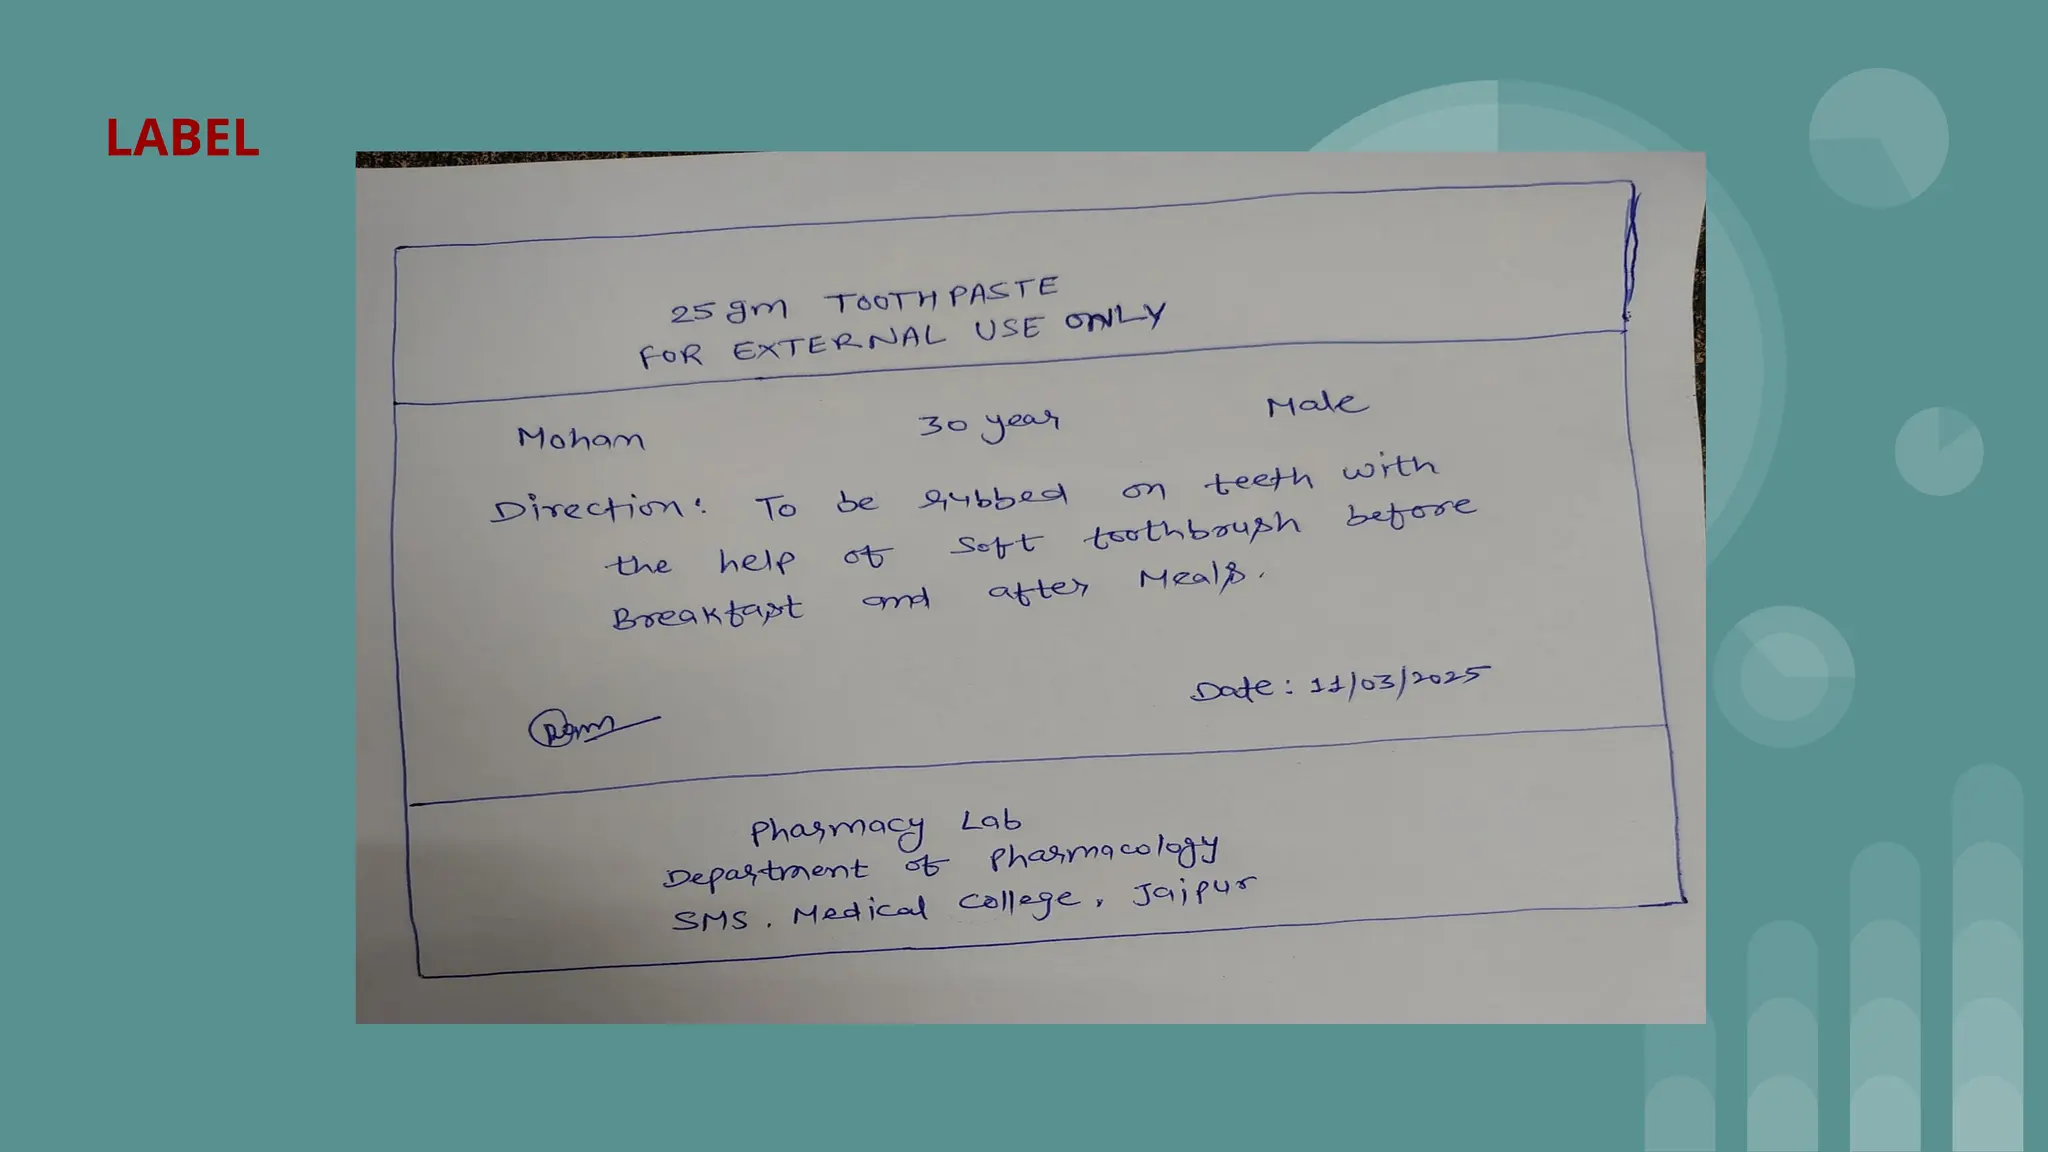 LABEL
25 gm TOOTHPASTE
FOR EXTERNAL USE ONLY
Moham 30 year Male
Direction: To be rubbed on teeth with
the help of soft toothbrush before
Breakfast and after Meals.
Date: 11/03/2025
Pharmacy Lab
Department of Pharmacology
SMS. Medical College, Jaipur